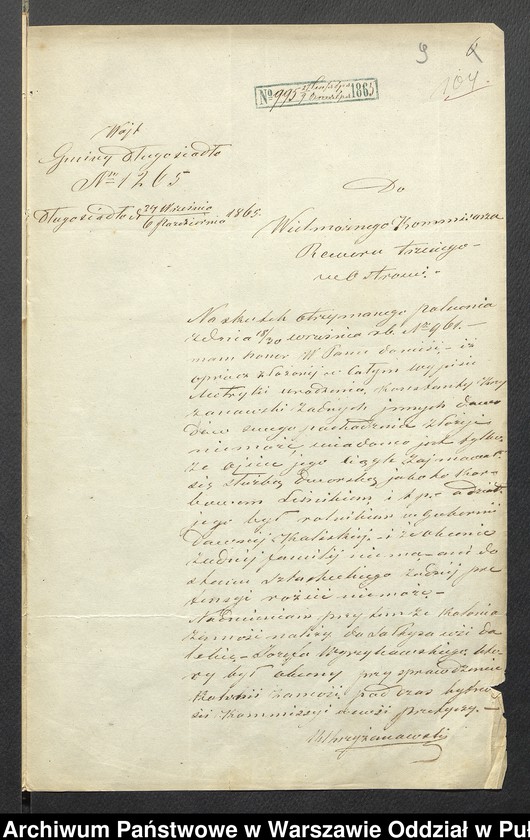 9
104
No 995 1865
Wójt
Gminy Długosiodło
Nr 1265
Długosiodło d 24 Września 1865
6 Października
Do
Wielmożnego Kommissarza
Rewiru trzeciego
w Ostrowi.
Na skutek otrzymanego polecenia
z dnia 18/30 września rb. Nr 961.
mam honor W Panu donieść iż
oprócz złożonéj w całym wypisie
Metryki urodzenia, Konstanty Krzy
żanowski żadnych innych dowo
dów swego pochodzenia złożyć
niemoże, wiadomo jest tylko,
że ojciec jego ciągle zajmował
się służbą dworską jako to kar
bowem Leśnikiem, i t.p. a dziad
jego był rolnikiem w Gubernii
Dawnéj Kaliskiéj, i że obecnie
żadnéj familij niema ani do
stanu szlacheckiego żadnéj pre
tensyi rościć niemoże.
Nadmieniam przy tem że Kolonia
Zamość należy do Sołtysa wsi
Józefa który
był obecny przy sprawdzeniu
Kolonii Zamość, podczas bytno
ści Kommissyi we wsi
Krzyżanowski
Archiwum Państwowe w Warszawie Oddział w Pu